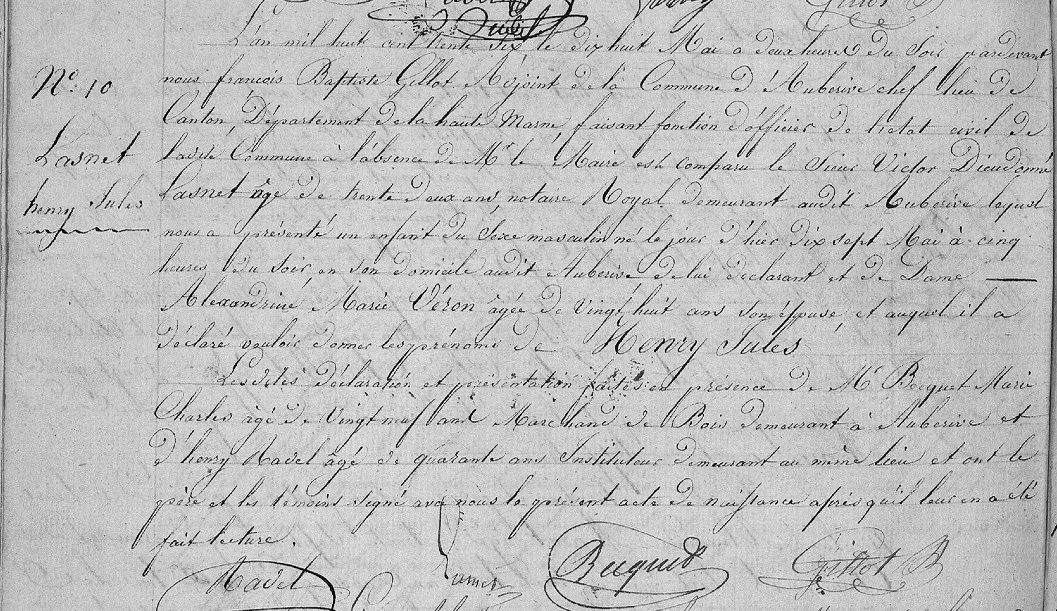 L'an mil huit cent trente six le dix huit Mai a deux heures du Soir pardevant
N.° 10
nous françois Baptiste Gillot Adjoint de la Commune d'Auberive chef lieu de
Canton, Département de la haute Marne, faisant fonction d'officier de l'etat civil de
Lasnet
ladite Commune à l'absence de Mr le Maire est comparu le Sieur Victor Dieudonné
henry Jules
Lasnet âgé de trente deux ans, notaire Royal, demeurant audit Auberive lequel
nous a présenté un enfant du Sexe masculin né le jour d'hier dix sept Mai à cinq
heures du Soir en son domicile audit Auberive de lui déclarant et de Dame
Alexandrine Marie Véron âgée de Vingt huit ans son épouse, et auquel il a
déclaré vouloir donner les prénoms de Henry Jules
Lesdites déclaration et présentation faites en présence de Mr Becquet Marie
Charles âgé de Vingt neuf ans Marchand de Bois demeurant à Auberive et
d'henry Ravel âgé de quarante ans Instituteur demeurant au même lieu et ont le
père et les témoins signé avec nous le présent acte de naissance après qu'il leur en a été
fait lecture.
Ravel Becquet Gillot B